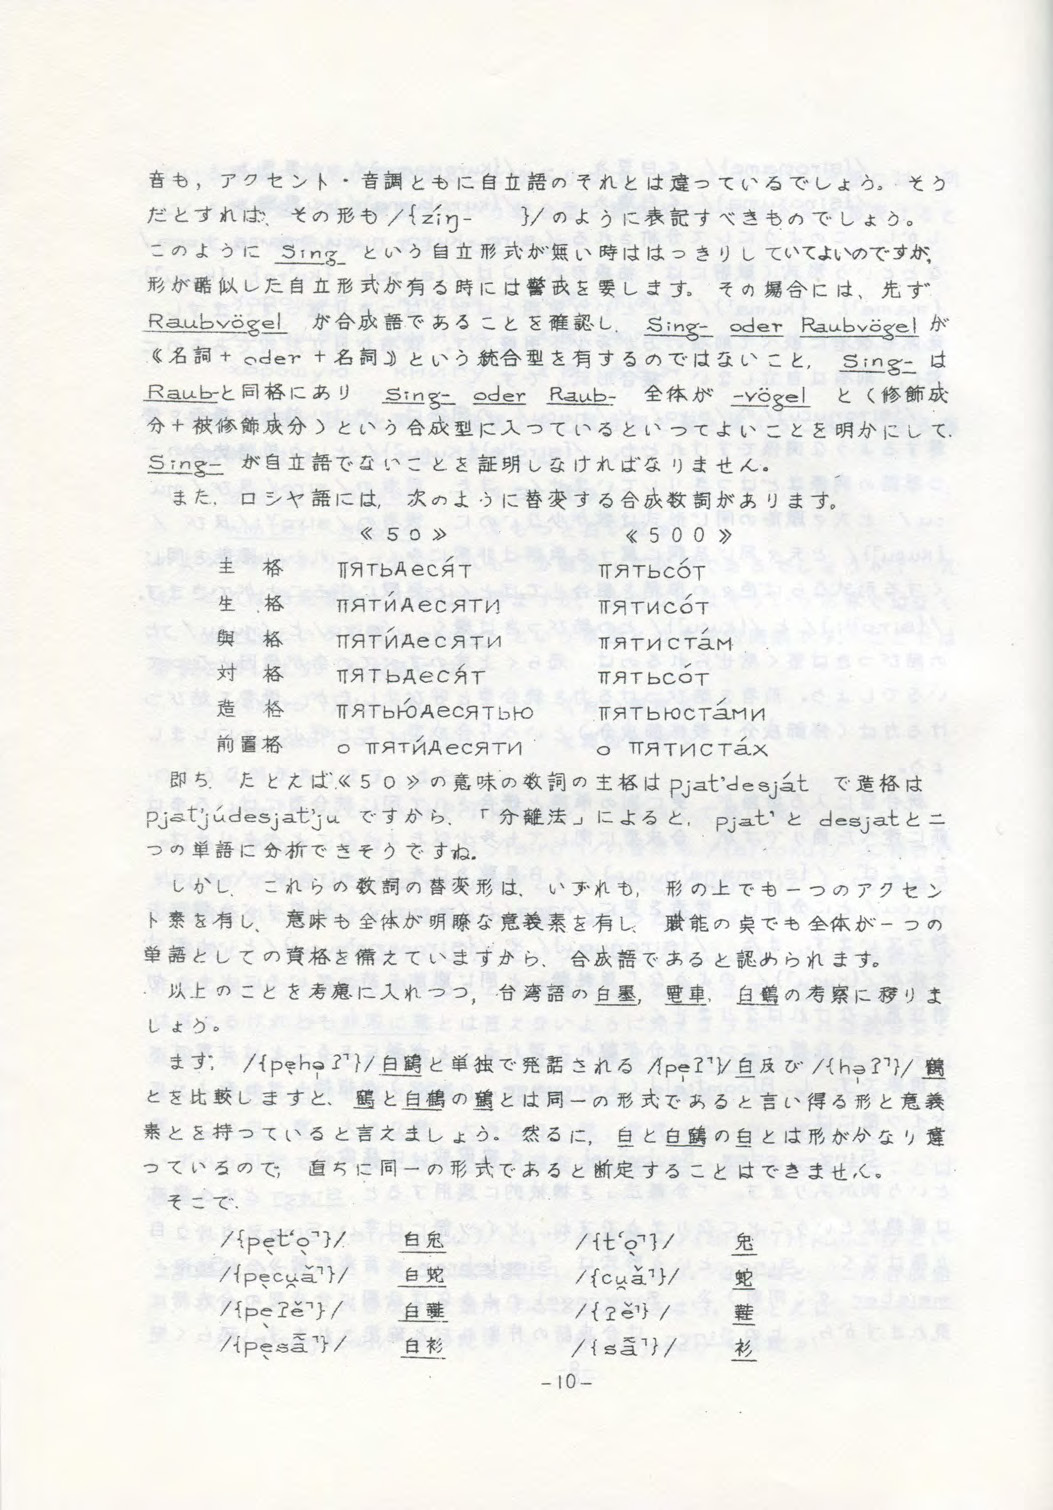 音も，アクセント・音調ともに自立語のそれとは違っているでしょう。そう
だとすれば、その形も/{ziŋ-　　}/のように表記すべきものでしょう。
このように Sing- という自立形式が無い時ははっきりしていてよいのですが，
形が酷似した自立形式が有る時には警戒を要します。その場合には、先ず
Raubvögel が合成語であることを確認し，Sing- oder Raubvögel が
《名詞＋oder＋名詞》という統合型を有するのではないこと，Sing- は
Raub-と同格にあり Sing- oder Raub- 全体が -vögel と〈修飾成
分＋被修飾成分〉という合成型に入っているといってよいことを明かにして，
Sing- が自立語でないことを証明しなければなりません。
また，ロシヤ語には，次のように替変する合成数詞があります。
《50》　《500》
主格　пятьдеся́т　пятьсо́т
生格　пяти́десяти　пятисо́т
與格　пяти́десяти　пятиста́м
対格　пятьдеся́т　пятьсо́т
造格　пятью́десятью　пятьюста́ми
前置格　о пяти́десяти　о пятиста́х
即ち，たとえば《50》の意味の数詞の主格は pjat'desját で造格は
pjat'júdesjat'ju ですから，「分離法」によると，pjat' と desjatと二
つの単語に分析できそうですね。
しかし，これらの数詞の替変形は，いずれも，形の上でも一つのアクセン
ト素を有し，意味も全体が明瞭な意義素を有し，職能の点でも全体が一つの
単語としての資格を備えていますから，合成語であると認められます。
以上のことを考慮に入れつつ，台湾語の白墨，電車，白鶴の考察に移りま
しょう。
まず，/{pe̩hə̩ʔ˥}/白鶴と単独で発話される/{pe̩ʔ˥}/白及び/{hə̩ʔ˥}/鶴
とを比較しますと，鶴と白鶴の鶴とは同一の形式であると言い得る形と意義
素とを持っていると言えましょう。然るに，白と白鶴の白とは形が分なり違
っているので，直ちに同一の形式であると断定することはできません。
そこで，
/{pe̩t‘o̩˥}/　白兎　/{t‘o̩˥}/　兎
/{pe̩cu̯ã˥}/　白蛇　/{cu̯ã˥}/　蛇
/{peʔě˥}/　白鞋　/{ʔě˥}/　鞋
/{pe̩sã˥}/　白衫　/{sã˥}/　衫
-10-